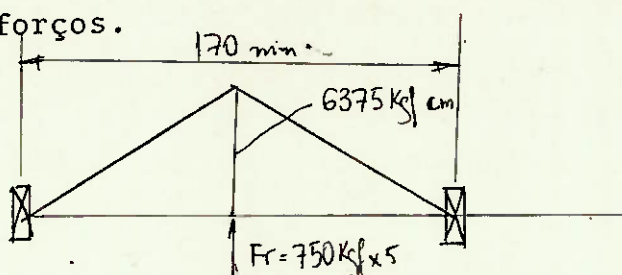 forços.
170 min.
6375 Kgf cm
Fr = 750 Kgf x 5